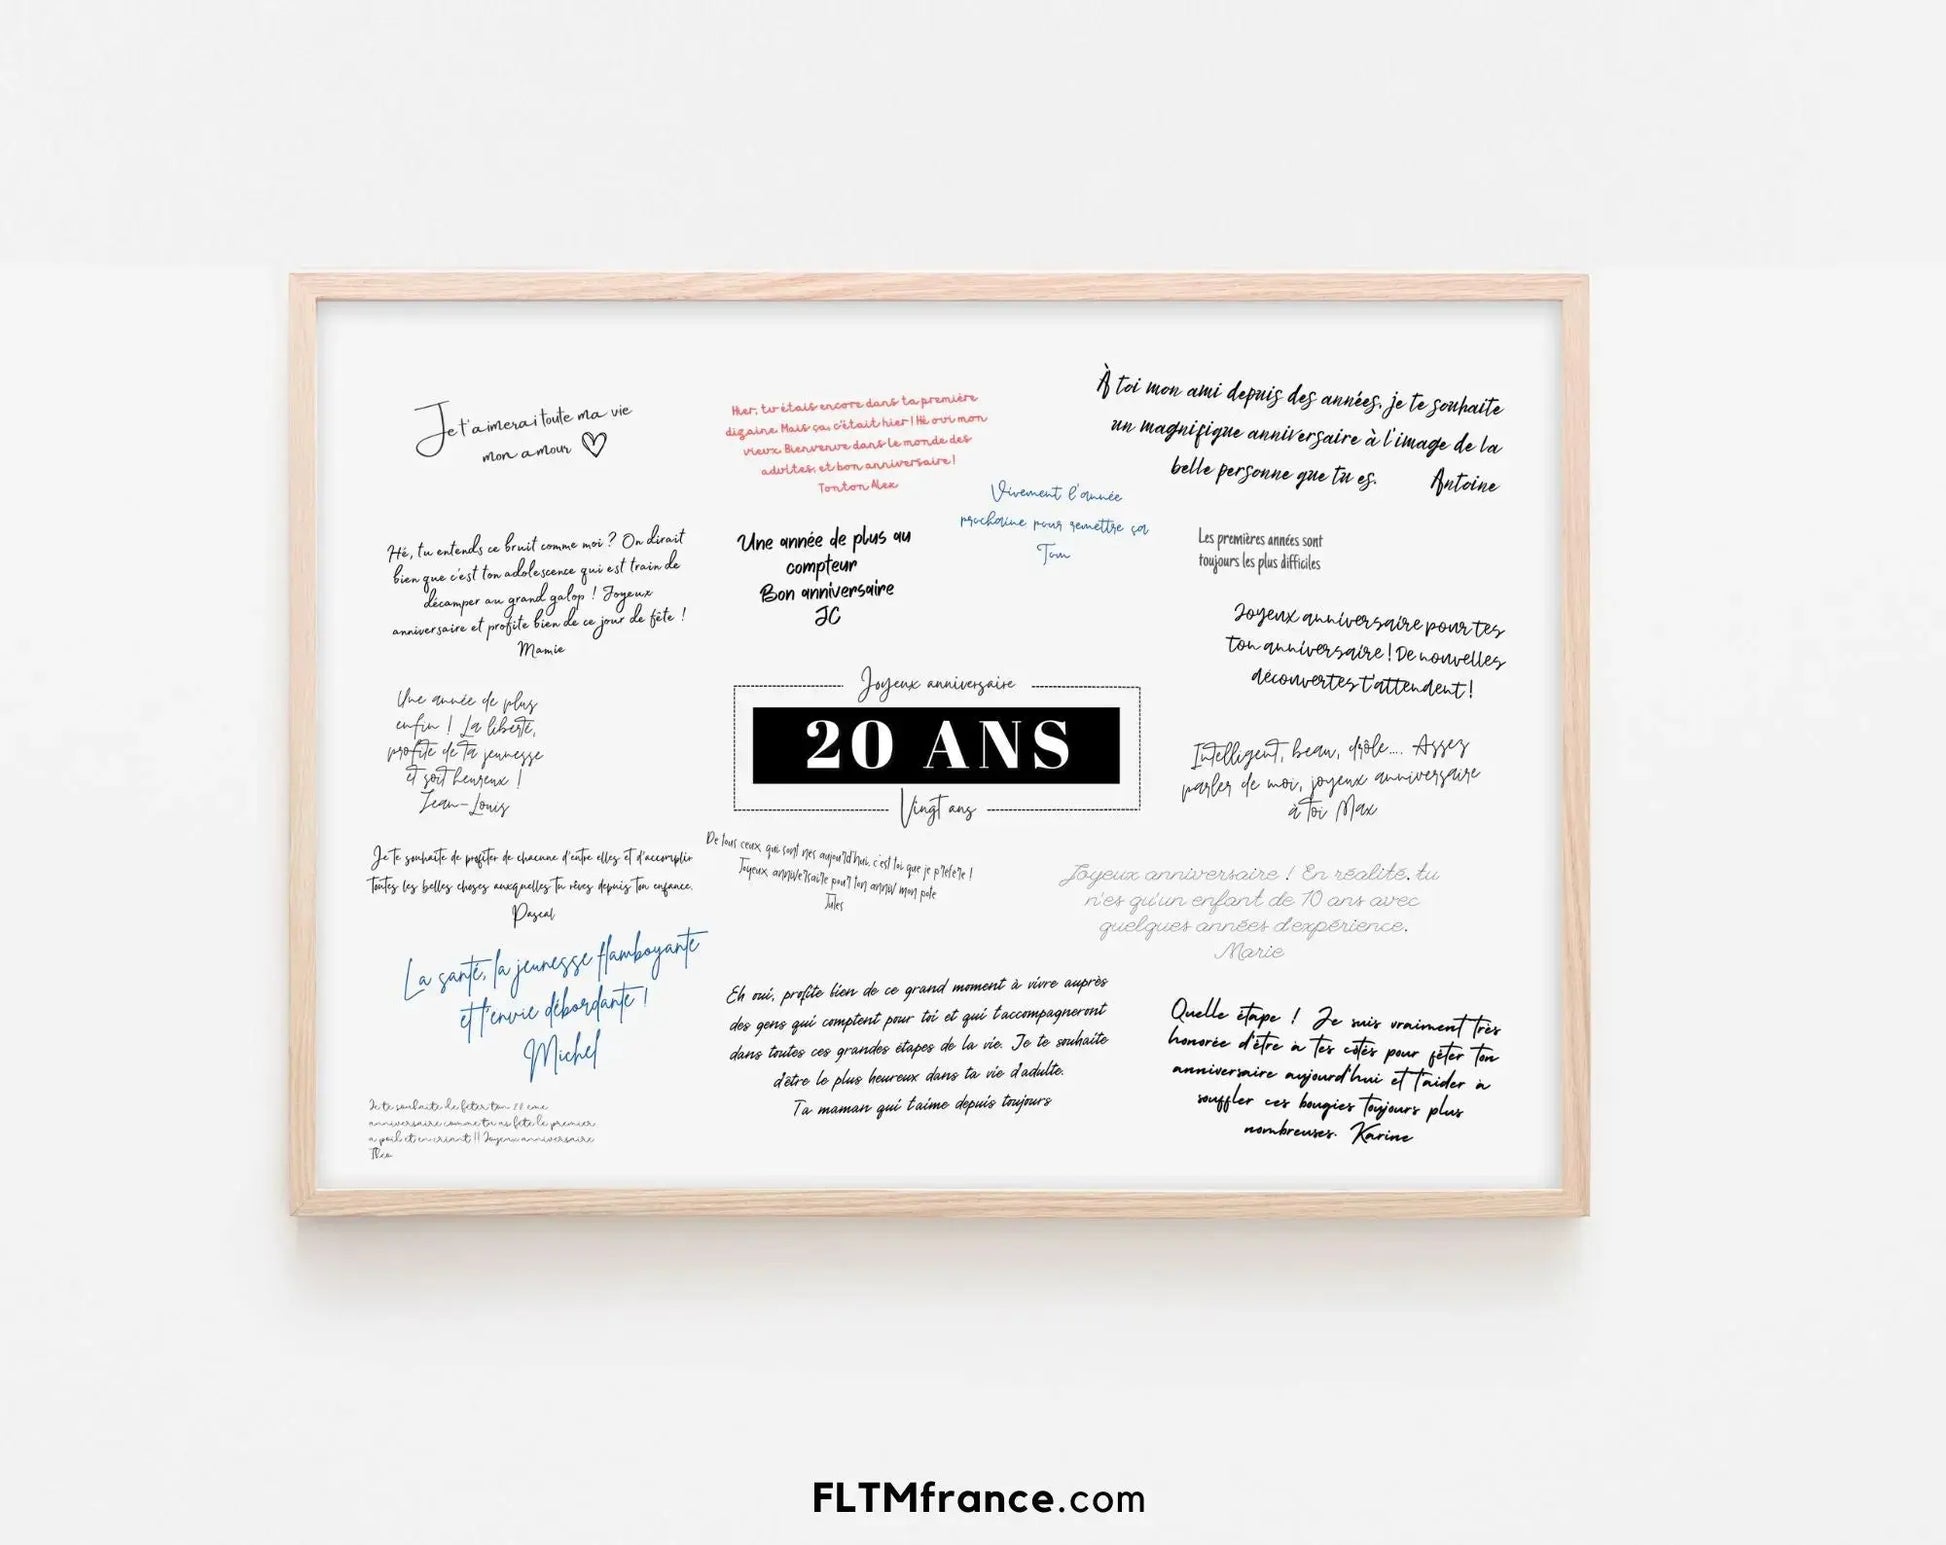 Je t'aimerai toute ma vie
mon amour
Hier, tu étais encore dans ta première
dizaine. Mais ça, c'était hier ! Hé oui mon
vieux. Bienvenue dans le monde des
adultes, et bon anniversaire !
Tonton Alex
À toi mon ami depuis des années, je te souhaite
un magnifique anniversaire à l'image de la
belle personne que tu es. Antoine
Vivement l'année
prochaine pour remettre ça
Tom
Hé, tu entends ce bruit comme moi ? On dirait
bien que c'est ton adolescence qui est train de
décamper au grand galop ! Joyeux
anniversaire et profite bien de ce jour de fête !
Mamie
Une année de plus au
compteur
Bon anniversaire
JC
Les premières années sont
toujours les plus difficiles
Joyeux anniversaire pour tes
ton anniversaire ! De nouvelles
découvertes t'attendent !
Une année de plus
enfin ! La liberté,
profite de ta jeunesse
et soit heureux !
Jean-Louis
Joyeux anniversaire
20 ANS
Vingt ans
Intelligent, beau, drôle.... Assez
parler de moi, joyeux anniversaire
à toi Max
Je te souhaite de profiter de chacune d'entre elles et d'accomplir
toutes les belles choses auxquelles tu rêves depuis ton enfance.
Pascal
De tous ceux qui sont nés aujourd'hui, c'est toi que je préfère !
Joyeux anniversaire pour ton anniv mon pote
Jules
Joyeux anniversaire ! En réalité, tu
n'es qu'un enfant de 10 ans avec
quelques années d'expérience.
Marie
La santé, la jeunesse flamboyante
et l'envie débordante !
Michel
Eh oui, profite bien de ce grand moment à vivre auprès
des gens qui comptent pour toi et qui t'accompagneront
dans toutes ces grandes étapes de la vie. Je te souhaite
d'être le plus heureux dans ta vie d'adulte.
Ta maman qui t'aime depuis toujours
Quelle étape ! Je suis vraiment très
honorée d'être à tes côtés pour fêter ton
anniversaire aujourd'hui et t'aider à
souffler ces bougies toujours plus
nombreuses. Karine
Je te souhaite de feter ton 20 eme
anniversaire comme tu as fete le premier
a poil et en criant !! Joyeux anniversaire
Theo
FLTMfrance.com